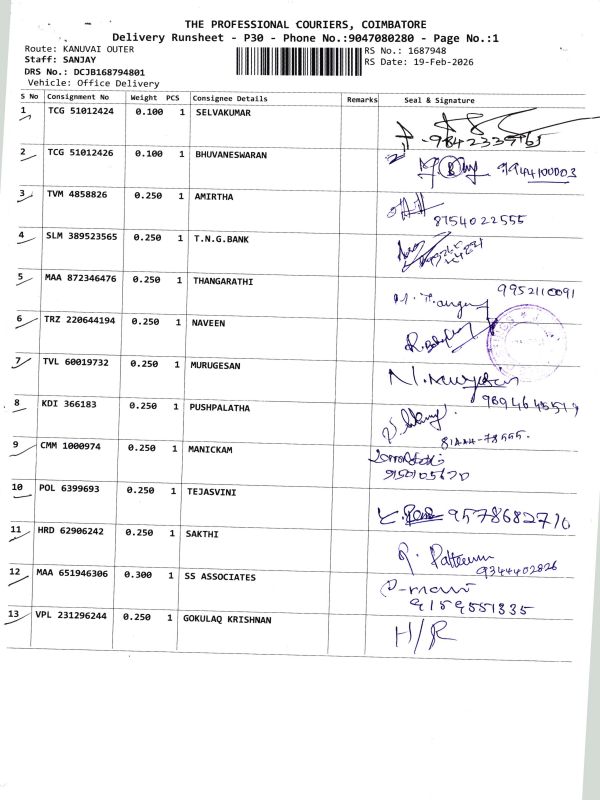 THE PROFESSIONAL COURIERS, COIMBATORE
Delivery Runsheet - P30 - Phone No.:9047080280 - Page No.:1
Route: KANUVAI OUTER
RS No.: 1687948
Staff: SANJAY
RS Date: 19-Feb-2026
DRS No.: DCJB168794801
Vehicle: Office Delivery
S No Consignment No Weight PCS Consignee Details Remarks Seal & Signature
1 TCG 51012424 0.100 1 SELVAKUMAR
2 TCG 51012426 0.100 1 BHUVANESWARAN 9944100003
3 TVM 4858826 0.250 1 AMIRTHA 8754022555
4 SLM 389523565 0.250 1 T.N.G.BANK
5 MAA 872346476 0.250 1 THANGARATHI 9952110091
6 TRZ 220644194 0.250 1 NAVEEN
7 TVL 60019732 0.250 1 MURUGESAN N.Murugesan
8 KDI 366183 0.250 1 PUSHPALATHA
9 CMM 1000974 0.250 1 MANICKAM
10 POL 6399693 0.250 1 TEJASVINI 9578682710
11 HRD 62906242 0.250 1 SAKTHI 9344402826
12 MAA 651946306 0.300 1 SS ASSOCIATES 9159551335
13 VPL 231296244 0.250 1 GOKULAQ KRISHNAN H/R